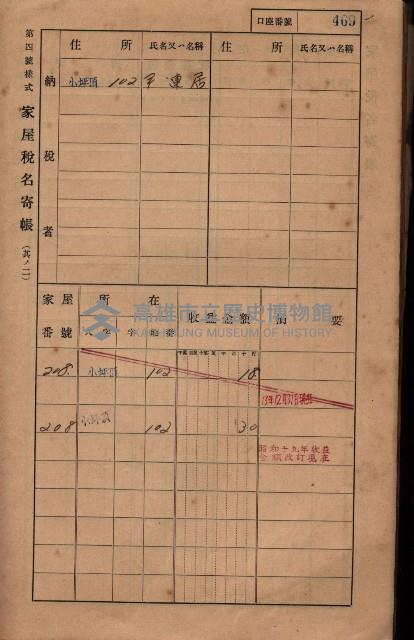 口座番號 469
第四號樣式 家屋稅名寄帳 (其ノ二)
納稅者
住所 氏名又ハ名稱 住所 氏名又ハ名稱
小坪頂 102 連居
家屋番號 所在 收益金額 摘要
大字 字 地番
208. 小坪頂 102 18
208 小坪頂 102 30
昭和十九年收益
金額改訂現在
高雄市立歷史博物館
KAOHSIUNG MUSEUM OF HISTORY